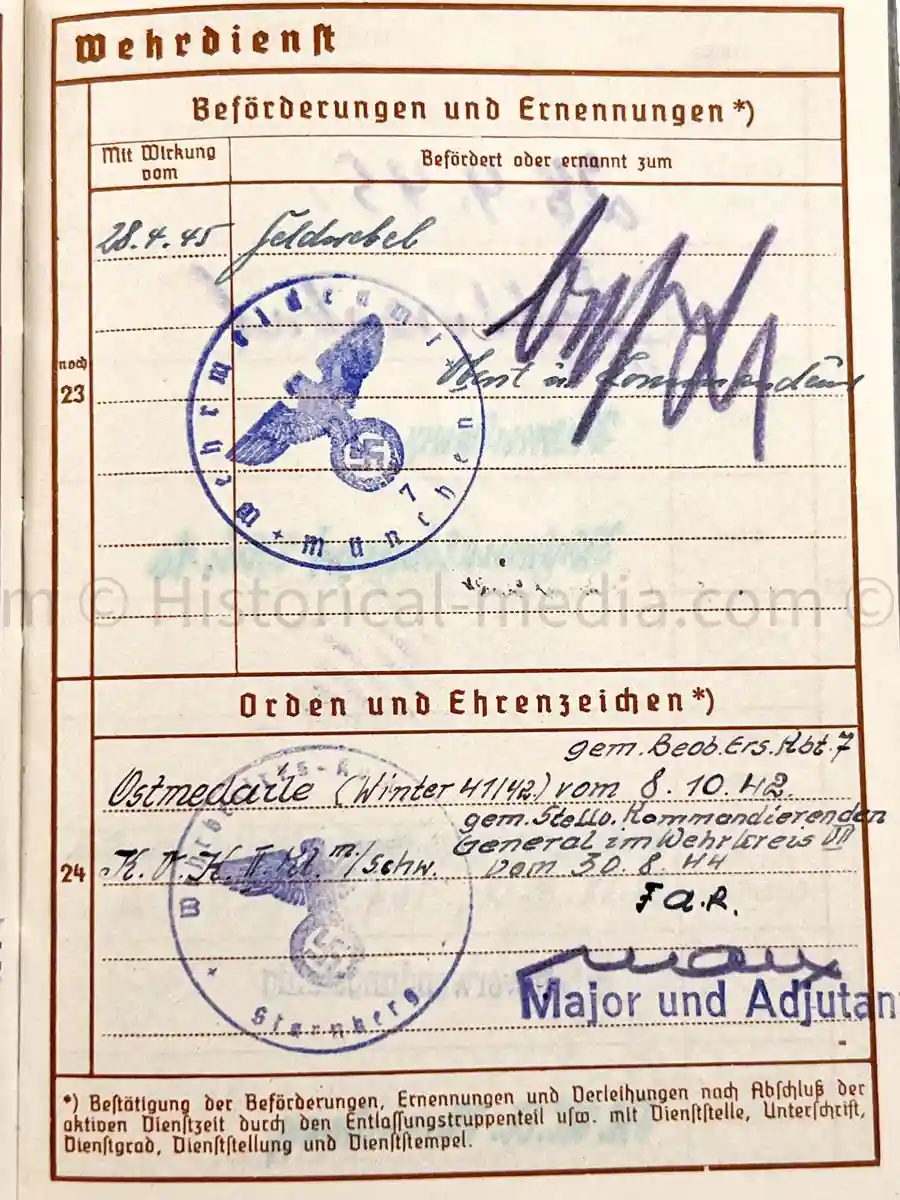 Wehrdienst
Beförderungen und Ernennungen*)
Mit Wirkung vom
Befördert oder ernannt zum
28.4.45 Feldwebel
Wehrmeldeamt * München 7 *
noch 23
m © Historical-media.com ©
Orden und Ehrenzeichen*)
gem. Beob. Ers. Abt. 7
Ostmedaille (Winter 41/42) vom 8.10.42.
gem. Stellv. Kommandierenden
General im Wehrkreis VII
24
K.V.K. II. Kl. m/schw. vom 30.8.44
F.d.R.
Starnberg
Major und Adjutan
*) Bestätigung der Beförderungen, Ernennungen und Verleihungen nach Abschluß der
aktiven Dienstzeit durch den Entlassungstruppenteil usw. mit Dienststelle, Unterschrift,
Dienstgrad, Dienststellung und Dienststempel.